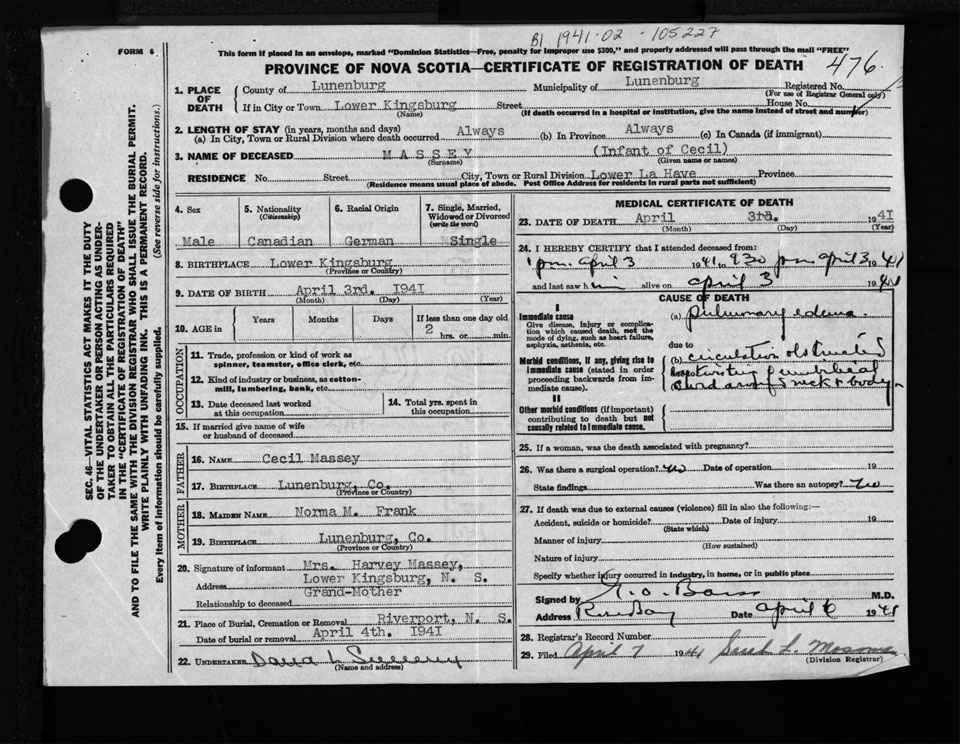 B1 1941-02-105227
FORM 6
This form if placed in an envelope, marked "Dominion Statistics—Free, penalty for improper use $300," and properly addressed will pass through the mail "FREE"
PROVINCE OF NOVA SCOTIA—CERTIFICATE OF REGISTRATION OF DEATH
476.
1. PLACE OF DEATH
County of Lunenburg Municipality of Lunenburg Registered No.
(For use of Registrar General only)
If in City or Town Lower Kingsburg Street House No.
(Name) (If death occurred in a hospital or institution, give the name instead of street and number)
2. LENGTH OF STAY (in years, months and days)
(a) In City, Town or Rural Division where death occurred Always (b) In Province Always (c) In Canada (if immigrant)
3. NAME OF DECEASED MASSEY (Infant of Cecil)
(Surname) (Given name or names)
RESIDENCE No. Street City, Town or Rural Division Lower La Have Province
(Residence means usual place of abode. Post Office Address for residents in rural parts not sufficient)
4. Sex
Male
5. Nationality
(Citizenship)
Canadian
6. Racial Origin
German
7. Single, Married, Widowed or Divorced
(write the word)
Single
8. BIRTHPLACE Lower Kingsburg
(Province or Country)
9. DATE OF BIRTH April 3rd. 1941
(Month) (Day) (Year)
10. AGE in Years Months Days If less than one day old
2 hrs. or min.
OCCUPATION
11. Trade, profession or kind of work as spinner, teamster, office clerk, etc.
12. Kind of industry or business, as cotton-mill, lumbering, bank, etc.
13. Date deceased last worked at this occupation
14. Total yrs. spent in this occupation
15. If married give name of wife or husband of deceased
FATHER
16. NAME Cecil Massey
17. BIRTHPLACE Lunenburg, Co.
(Province or Country)
MOTHER
18. MAIDEN NAME Norma M. Frank
19. BIRTHPLACE Lunenburg, Co.
(Province or Country)
20. Signature of informant Mrs. Harvey Massey,
Address Lower Kingsburg, N. S.
Relationship to deceased Grand-Mother
21. Place of Burial, Cremation or Removal Riverport, N. S.
Date of burial or removal April 4th. 1941
22. UNDERTAKER
(Name and address)
MEDICAL CERTIFICATE OF DEATH
23. DATE OF DEATH April 3rd. 1941
(Month) (Day) (Year)
24. I HEREBY CERTIFY that I attended deceased from:
1 pm. April 3 1941 to 930 pm April 3 1941
and last saw him alive on April 3 1941
CAUSE OF DEATH
I
Immediate cause
Give disease, injury or complication which caused death, not the mode of dying, such as heart failure, asphyxia, asthenia, etc.
(a) pulmonary edema.
due to
Morbid conditions, if any, giving rise to immediate cause (stated in order proceeding backwards from immediate cause).
(b) circulation obstructed
twisting of umbilical
cord around neck & body
II
Other morbid conditions (if important) contributing to death but not causally related to immediate cause.
25. If a woman, was the death associated with pregnancy?
26. Was there a surgical operation? no Date of operation 19
State findings Was there an autopsy? no
27. If death was due to external causes (violence) fill in also the following:—
Accident, suicide or homicide? Date of injury 19
(State which)
Manner of injury
(How sustained)
Nature of injury
Specify whether injury occurred in industry, in home, or in public place
Signed by M.D.
Address Rose Bay Date April 6 1941
28. Registrar's Record Number
29. Filed April 7 1941 Sarah L.
(Division Registrar)
SEC. 46—VITAL STATISTICS ACT MAKES IT THE DUTY
OF THE UNDERTAKER OR PERSON ACTING AS UNDER-
TAKER TO OBTAIN ALL THE PARTICULARS REQUIRED
IN THE "CERTIFICATE OF REGISTRATION OF DEATH"
AND TO FILE THE SAME WITH THE DIVISION REGISTRAR WHO SHALL ISSUE THE BURIAL PERMIT.
WRITE PLAINLY WITH UNFADING INK. THIS IS A PERMANENT RECORD.
Every item of information should be carefully supplied. (See reverse side for instructions.)